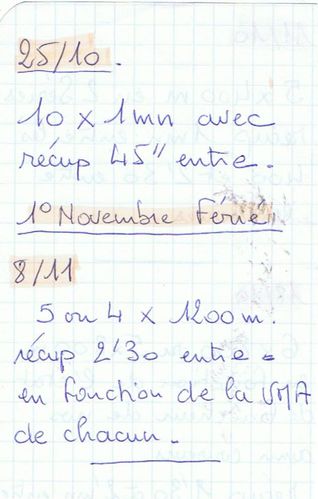 25/10.
10 x 1mn avec
récup 45" entre.
1° Novembre Férié
8/11
5 ou 4 x 1200m.
récup 2'30 entre
en fonction de la VMA
de chacun.